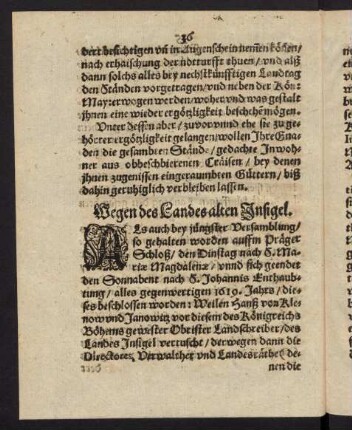 36
dert besichtigen vñ in Augenschein nemen können/
nach erhaischung der notturfft thuen/ vnd alß
dann solchs alles bey nechstkünfftigen Landtag
den Ständen vorgetragen/ vnd neben der Kön:
May: erwogen werden/ woher vnd was gestalt
jhnen eine wieder ergötzligkeit beschehē mögen.
Vnter dessen aber/ zuvor vnnd ehe sie zu ge-
hörter ergötzligkeit gelangen/ wollen Ihre Gna-
den die gesambten Stände/ gedachte Inwoh-
ner aus obbeschriebenen Cräisen/ bey denen
jhnen zugenissen eingeraumbten Güttern/ biß
dahin geruhiglich verbleiben lassen.
Wegen des Landes alten Insigel.
Als auch bey jüngster Versamblung/
so gehalten worden auffm Präger
Schloß/ den Dinstag nach S. Ma-
riæ Magdalenæ/ vnnd sich geendet
den Sonnabent nach S. Johannis Enthaub-
tung/ alles gegenwertigen 1619. Jahrs/ die-
ses beschlossen worden: Weilen Hanß von Kle-
now vnd Janowitz vor diesem des Königreichs
Böhems gewester Obrister Landschreiber/ des
Landes Insigel vertuscht/ derwegen dann die
Directores, Verwalther vnd Landesräthe/ de-
nen die